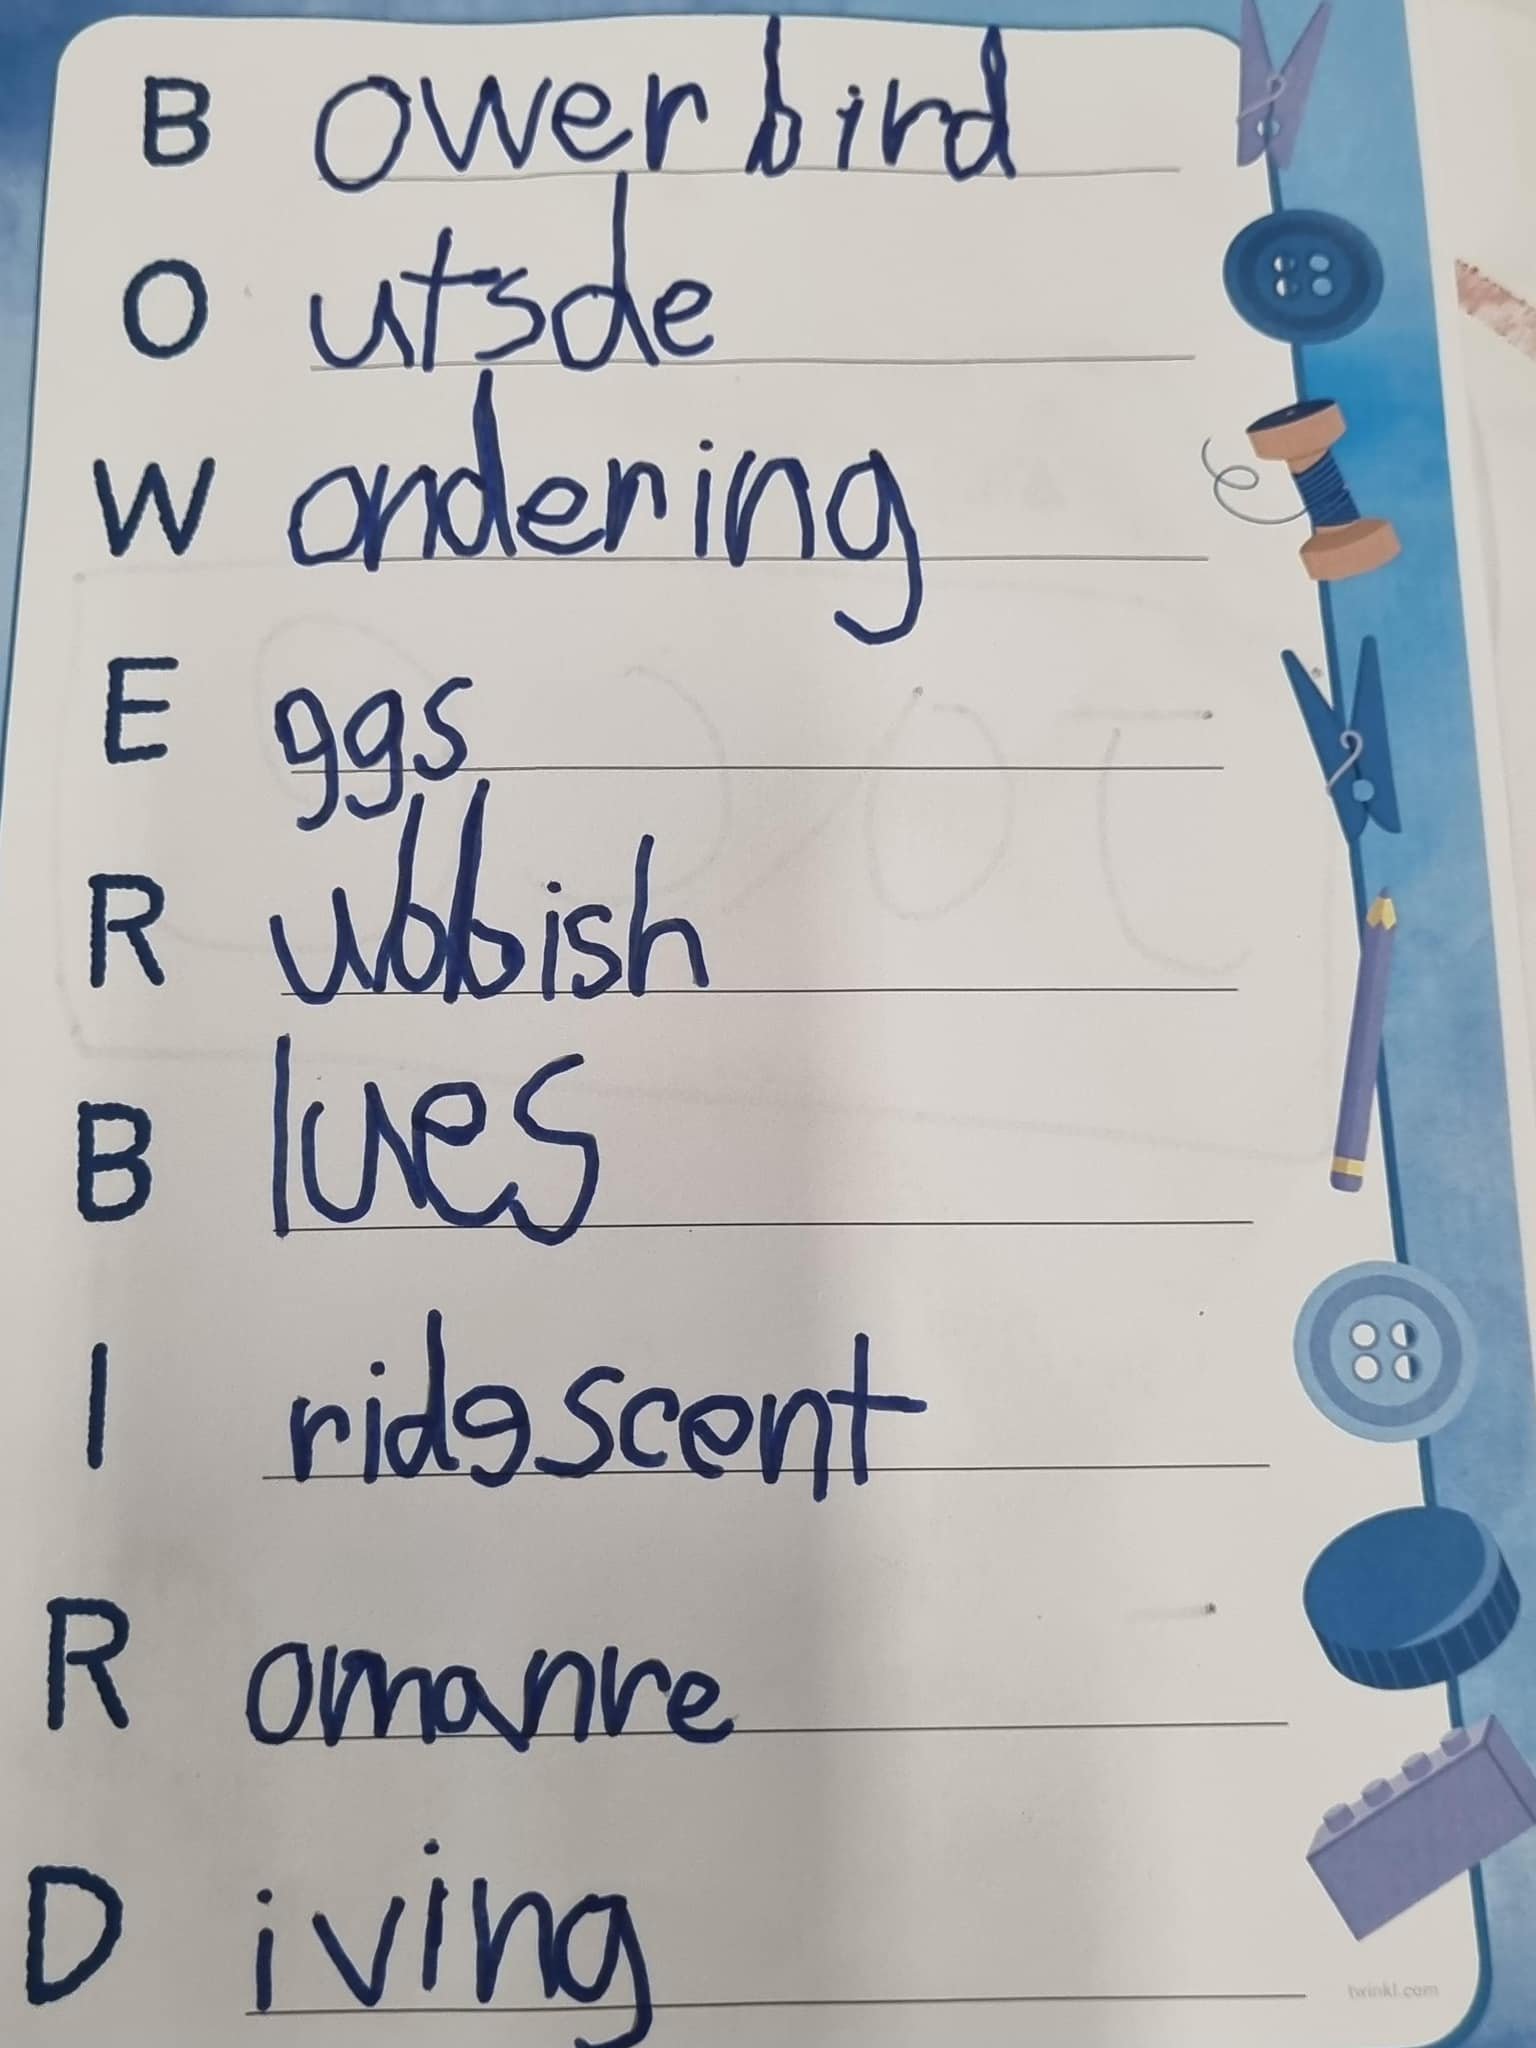 B owerbird
O utsde
W andering
E ggs
R ubbish
B lues
I ridescent
R omanre
D iving
twinkl.com